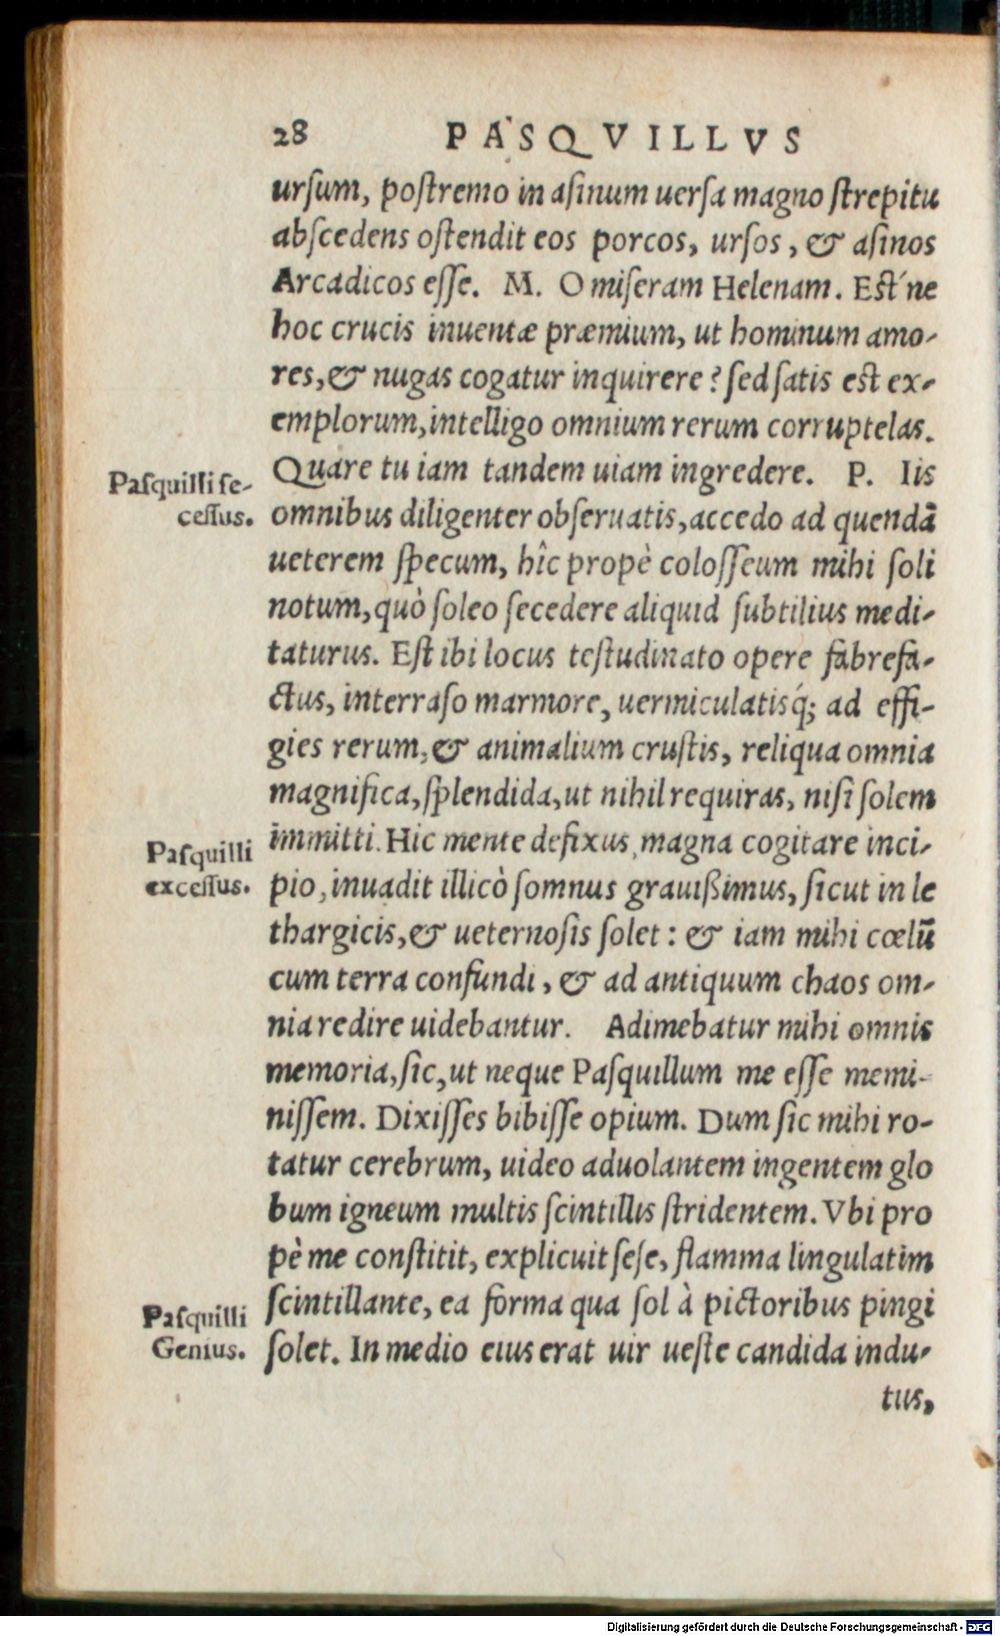 28 PASQVILLVS
urſum, poſtremo in aſinum uerſa magno ſtrepitu
abſcedens oſtendit eos porcos, urſos, & aſinos
Arcadicos eſſe. M. O miſeram Helenam. Eſt´ne
hoc crucis inuentæ præmium, ut hominum amo-
res, & nugas cogatur inquirere? ſed ſatis eſt ex-
emplorum, intelligo omnium rerum corruptelas.
Quare tu iam tandem uiam ingredere. P. Iis
Paſquilli ſe-
ceſſus.
omnibus diligenter obſeruatis, accedo ad quendā
ueterem ſpecum, hîc propè coloſſeum mihi ſoli
notum, quò ſoleo ſecedere aliquid ſubtilius medi-
taturus. Eſt ibi locus teſtudinato opere fabrefa-
ctus, interraſo marmore, uermiculatisq́; ad effi-
gies rerum, & animalium cruſtis, reliqua omnia
magnifica, ſplendida, ut nihil requiras, niſi ſolem
immitti. Hic mente defixus, magna cogitare inci-
Paſquilli
exceſſus.
pio, inuadit illicò ſomnus grauißimus, ſicut in le
thargicis, & ueternoſis ſolet: & iam mihi cœlū
cum terra confundi, & ad antiquum chaos om-
nia redire uidebantur. Adimebatur mihi omnis
memoria, ſic, ut neque Paſquillum me eſſe memi-
niſſem. Dixiſſes bibiſſe opium. Dum ſic mihi ro-
tatur cerebrum, uideo aduolantem ingentem glo
bum igneum multis ſcintillis ſtridentem. Vbi pro
pè me conſtitit, explicuit ſeſe, flamma lingulatim
ſcintillante, ea forma qua ſol à pictoribus pingi
Paſquilli
Genius.
ſolet. In medio eius erat uir ueſte candida indu-
tus,
Digitalisierung gefördert durch die Deutsche Forschungsgemeinschaft - DFG